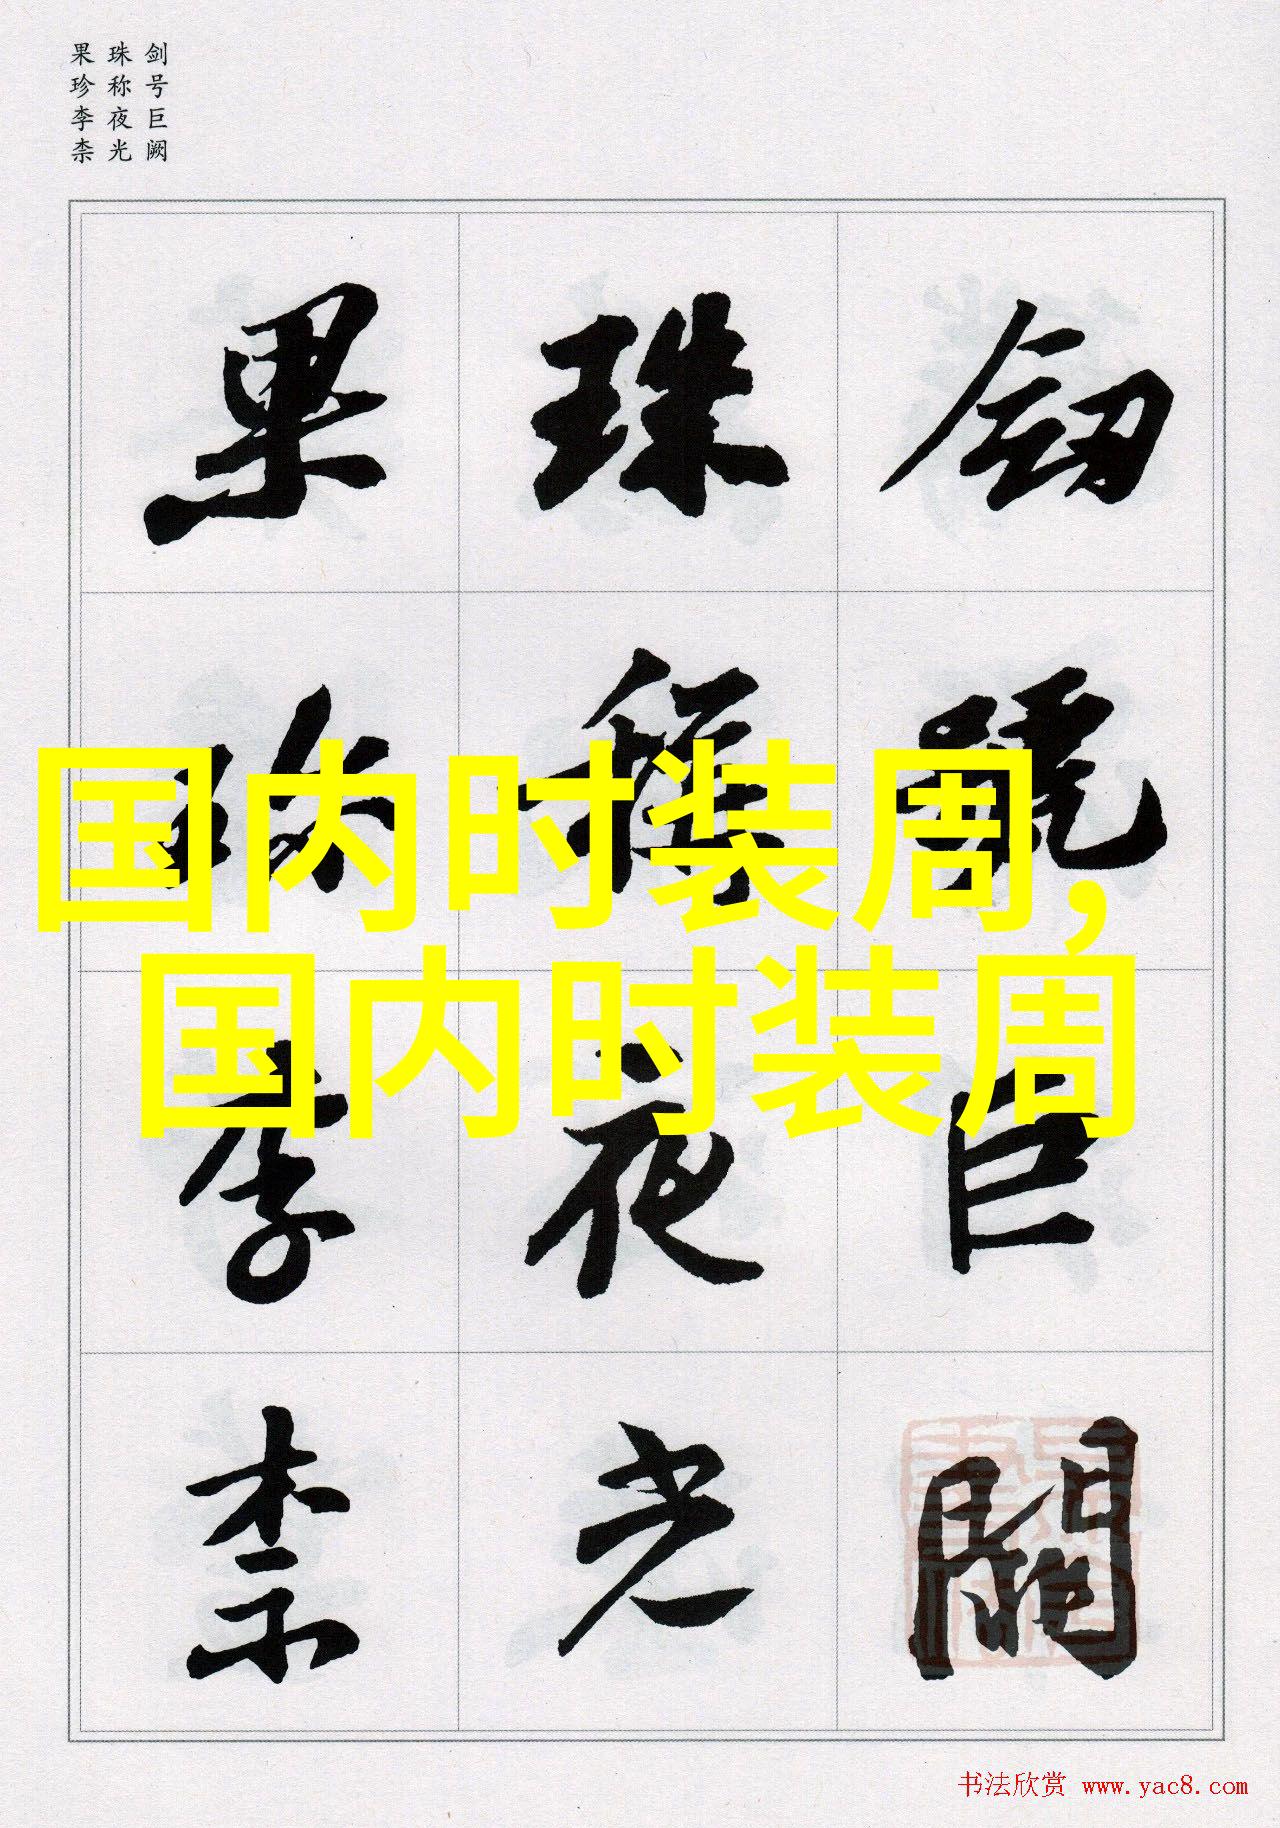 剑号巨阙
珠称夜光
果珍李柰
剑號巨闕
珠稱夜光
果珍李柰
国内时装周,
国内时装周
书法欣赏 www.yac8.com